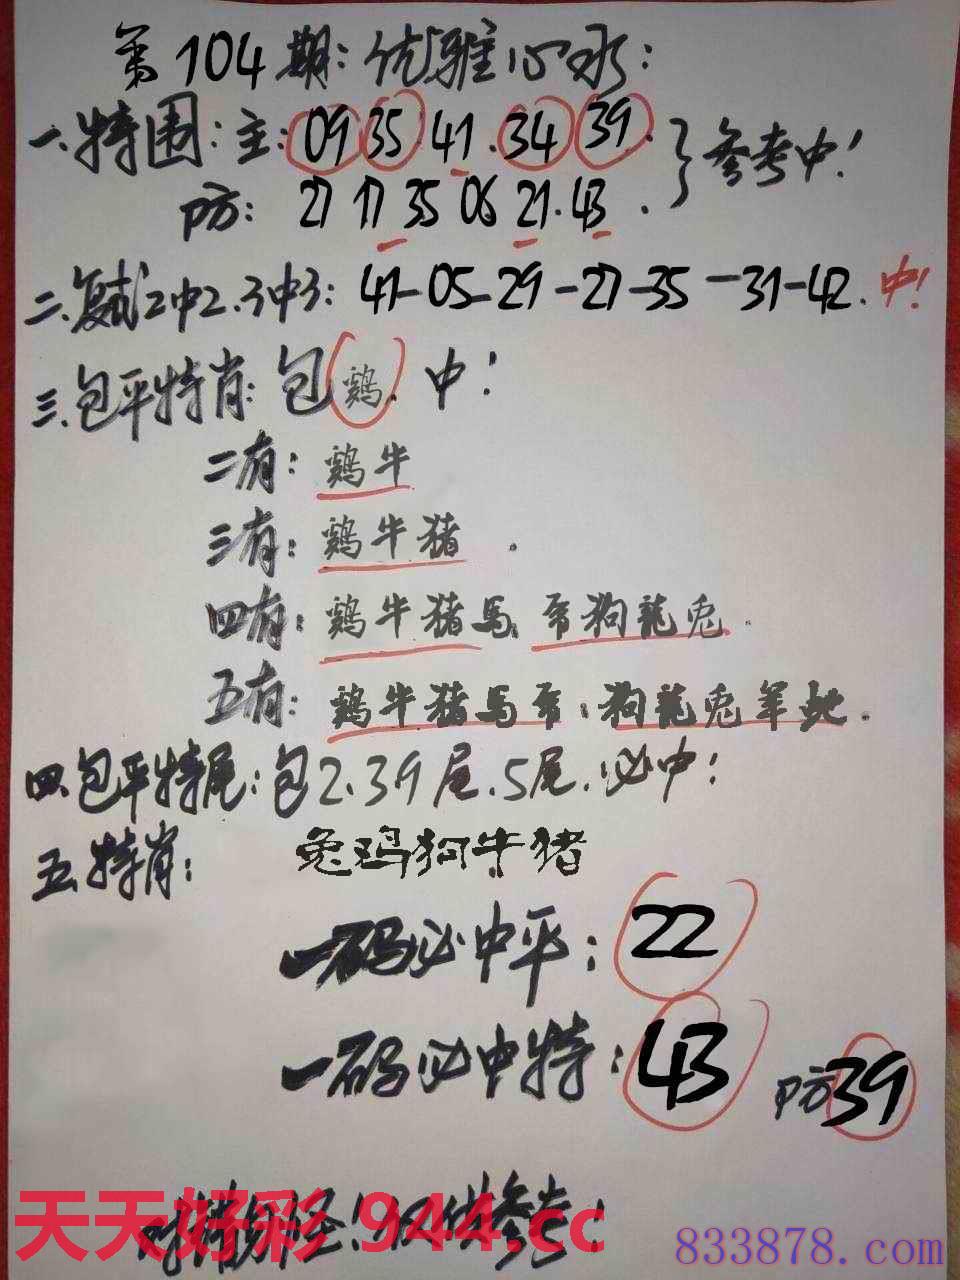 第104期：优雅心水：
一.特围：主：09 35 41.34 39.
参考中！
防：27 17 35 06 21.43.
二.复试2中2.3中3：41-05-29-27-35-31-42.中！
三.包平特肖：包鷄.中！
二有：鷄牛
三有：鷄牛猪.
四有：鷄牛猪馬.帝狗龍兔.
五有：鷄牛猪馬帝：狗龍兔羊蛇.
四.包平特尾：包2.39尾.5尾.必中！
五.特肖：兔鸡狗牛猪
一码必中平：22
一码必中特：43 防39
天天好彩 944.cc
833878.com